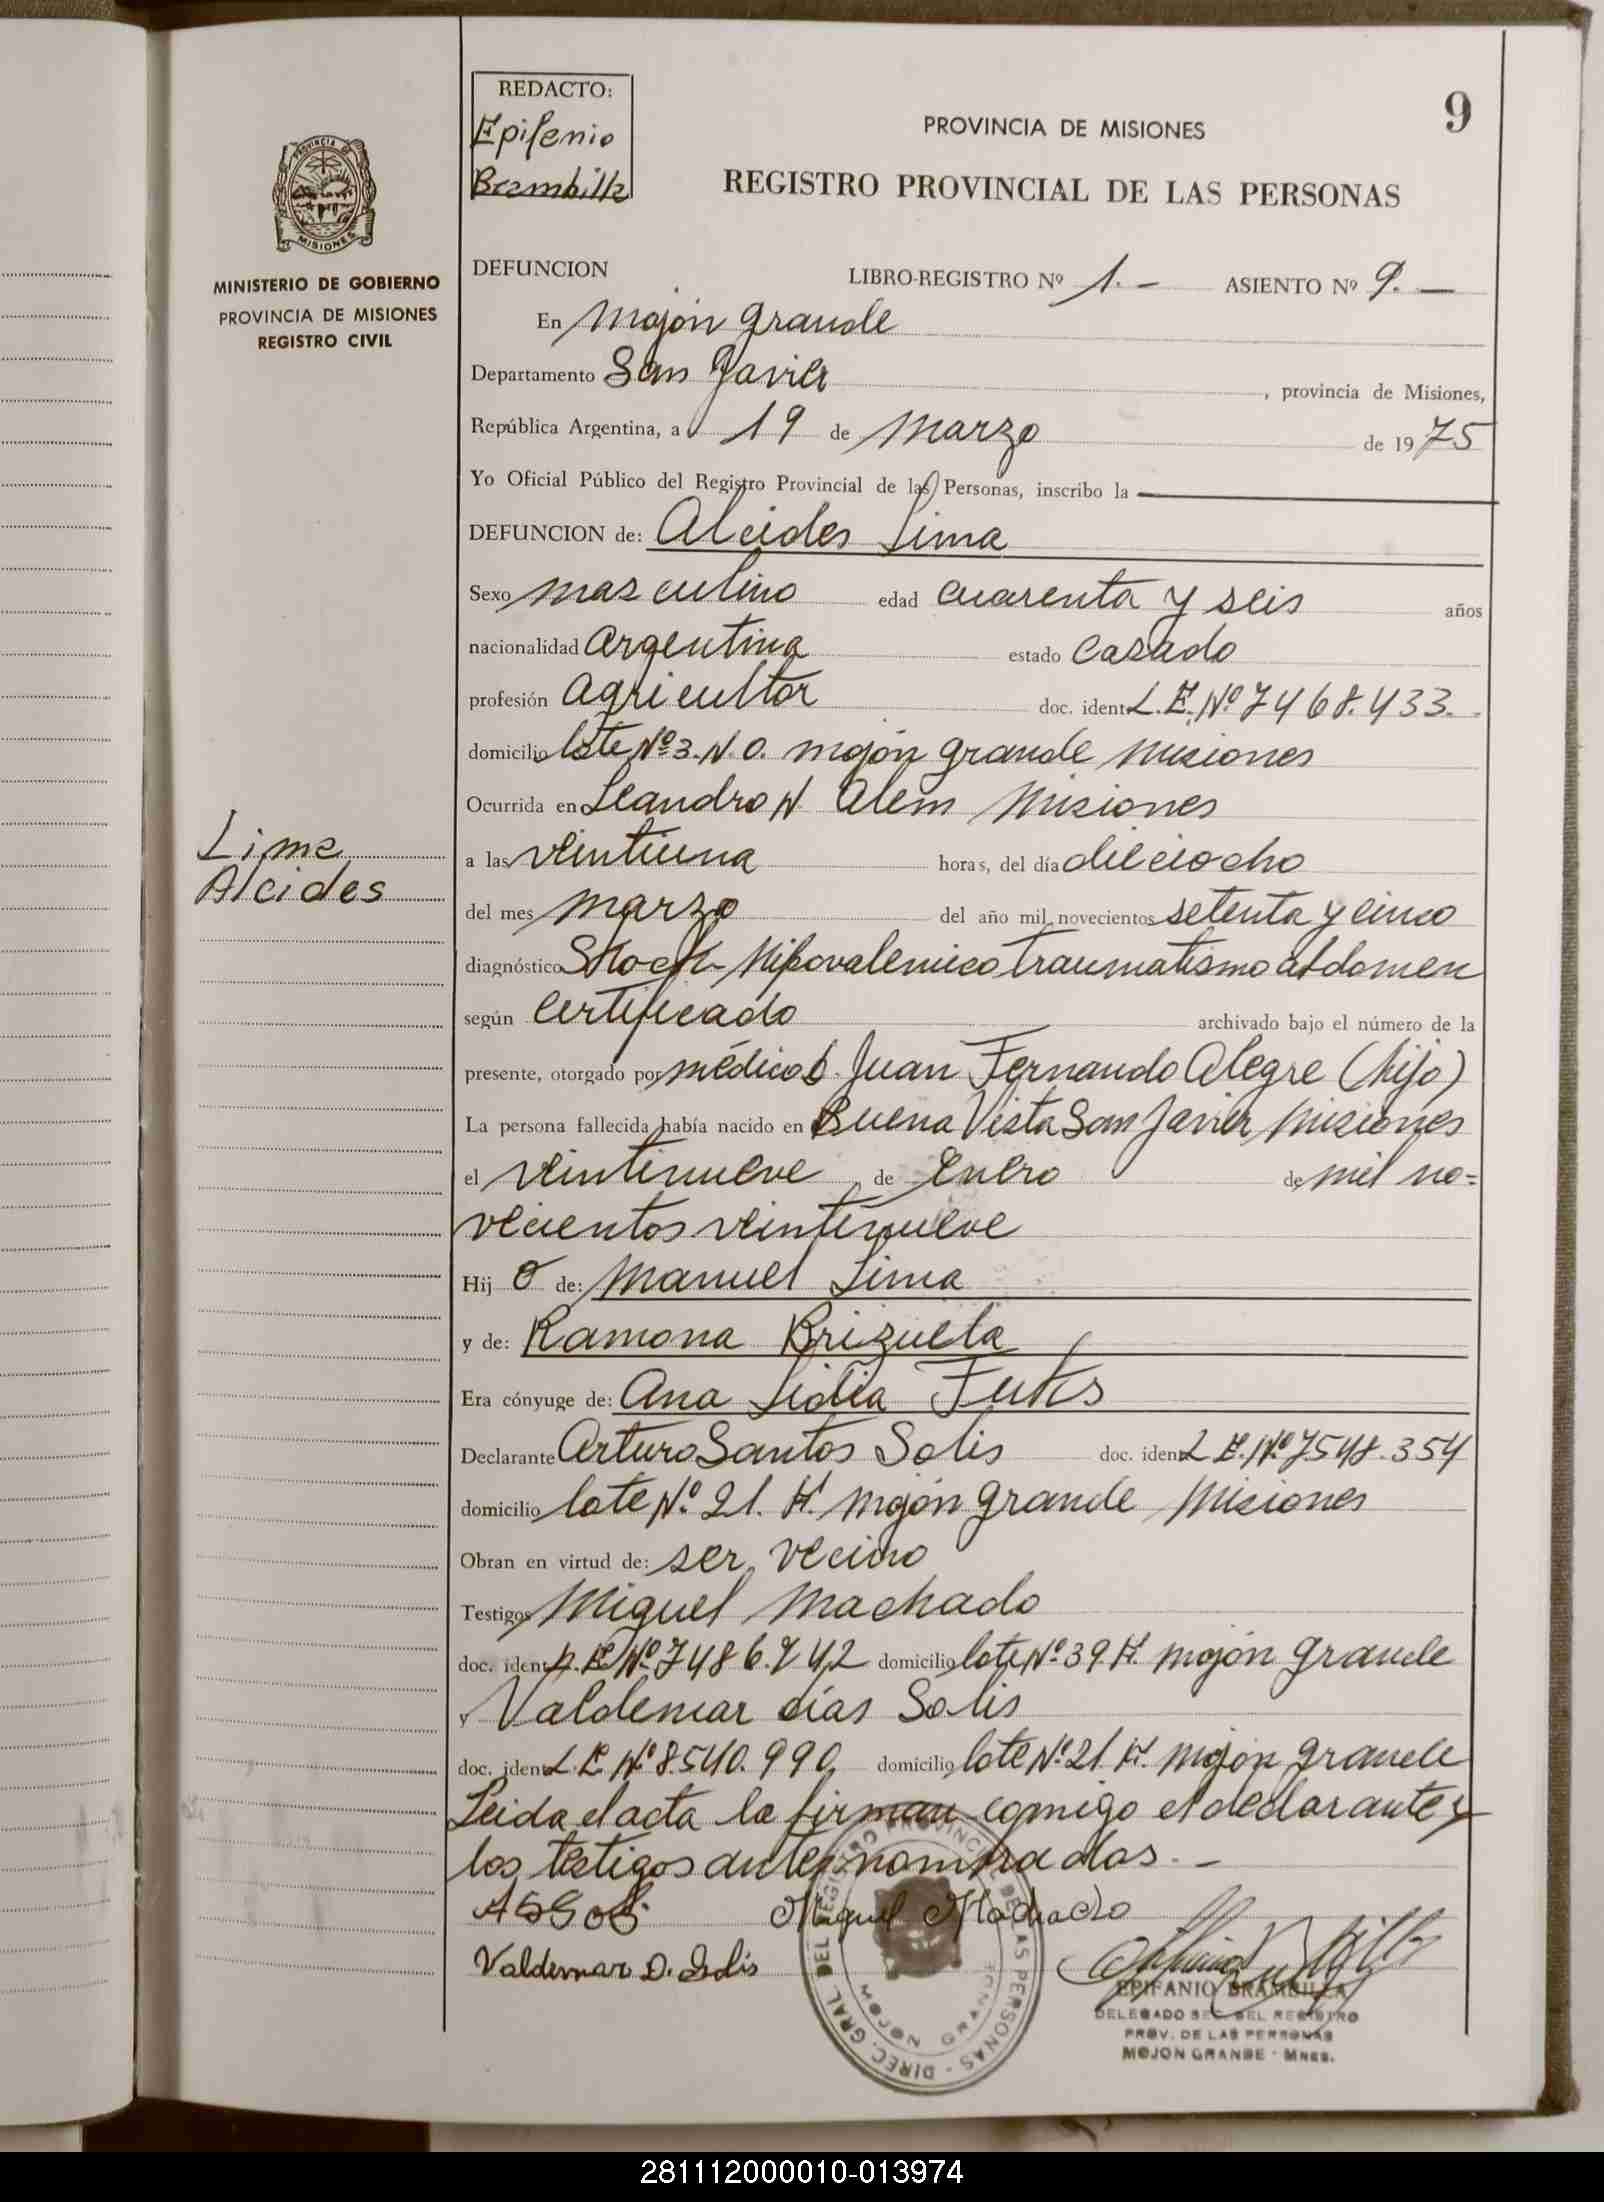 9
REDACTO:
Epifenio
Brambilla
PROVINCIA DE MISIONES
REGISTRO PROVINCIAL DE LAS PERSONAS
PROVINCIA DE
MISIONES
MINISTERIO DE GOBIERNO
PROVINCIA DE MISIONES
REGISTRO CIVIL
DEFUNCION LIBRO-REGISTRO Nº 1.- ASIENTO Nº 9.-
En Mojón grande
Departamento San Javier, provincia de Misiones,
República Argentina, a 19 de Marzo de 1975
Yo Oficial Público del Registro Provincial de las Personas, inscribo la
DEFUNCION de: Alcides Lima
Sexo masculino edad cuarenta y seis años
nacionalidad argentina estado casado
profesión agricultor doc. ident. L.E. Nº 7468.433.
domicilio lote Nº 3. N.O. mojón grande Misiones
Ocurrida en Leandro N Alem Misiones
Lima
Alcides
a las veintiuna horas, del día dieciocho
del mes marzo del año mil novecientos setenta y cinco
diagnóstico Shock Hipovalemico traumatismo abdomen
según certificado archivado bajo el número de la
presente, otorgado por médico Juan Fernando Alegre (hijo)
La persona fallecida había nacido en Buena Vista San Javier Misiones
el veintinueve de Enero de mil no=
vecientos veintinueve
Hijo de: Manuel Lima
y de: Ramona Brizuela
Era cónyuge de: Ana Lidia Fuks
Declarante Arturo Santos Solis doc. ident. L.E. Nº 7548.354
domicilio lote Nº 21. H. mojón grande Misiones
Obran en virtud de: ser vecino
Testigos Miguel Machado
doc. ident. Nº domicilio lote Nº 39 H. mojón grande
y Valdemar días Solis
doc. ident. L.E. Nº 8.540.990 domicilio lote Nº 21 H. mojón grande
Leida el acta la firman comigo el declarante y
los testigos antes nombrados.-
Miguel Machado
Valdemar D. Solis
DIREC. GRAL DEL REGISTRO PROVINCIAL DE LAS PERSONAS
MOJON GRANDE
EPIFANIO BRAMBILLA
DELEGADO SEC. DEL REGISTRO
PROV. DE LAS PERSONAS
MOJON GRANDE - MNES.
281112000010-013974